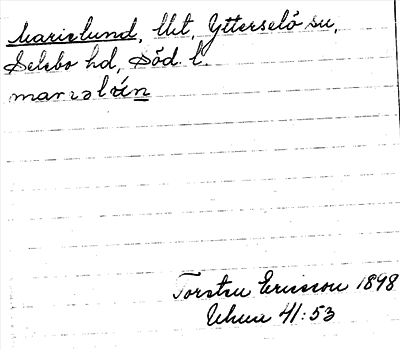 Marielund, Utl, Ytterselö sn,
Selebo hd, Söd. l.
marɩəlún
Torsten Ericsson 1898
Uhuu 41:53